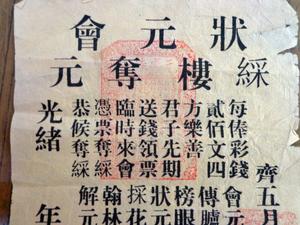 狀元會
綵樓奪元
每俸彩錢
貳佰文四
方樂善
君子先期
送錢領票
臨時來會
憑票奪綵
恭候奪綵
齊五月
會元
傳臚
榜眼
狀元
採花
翰林
解元
光緒
年